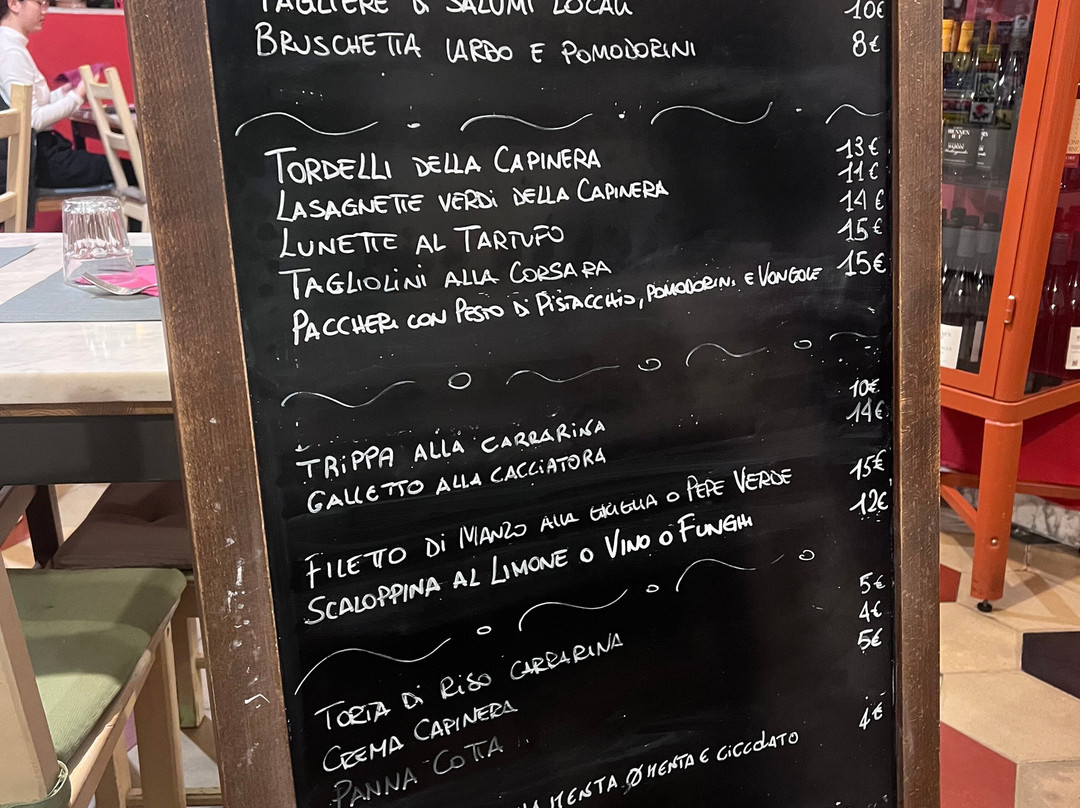 TAGLIERE DI SALUMI LOCALI 10€
BRUSCHETTA LARDO E POMODORINI 8€
TORDELLI DELLA CAPINERA 13€
LASAGNETTE VERDI DELLA CAPINERA 11€
LUNETTE AL TARTUFO 14€
TAGLIOLINI ALLA CORSARA 15€
PACCHERI CON PESTO DI PISTACCHIO, POMODORINI E VONGOLE 15€
TRIPPA ALLA CARRARINA 10€
GALLETTO ALLA CACCIATORA 14€
FILETTO DI MANZO ALLA GRIGLIA O PEPE VERDE 15€
SCALOPPINA AL LIMONE O VINO O FUNGHI 12€
TORTA DI RISO CARRARINA 5€
CREMA CAPINERA 4€
PANNA COTTA 5€
MENTA O MENTA E CICCOLATO 4€